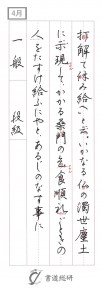 4月
拝解て休み給へと云、いかなる仏の濁世塵土
に示現して、かかる桑門の乞食順礼ごときの
人をたすけ給ふにやと、あるじのなす事に
一般　段級
書道総研